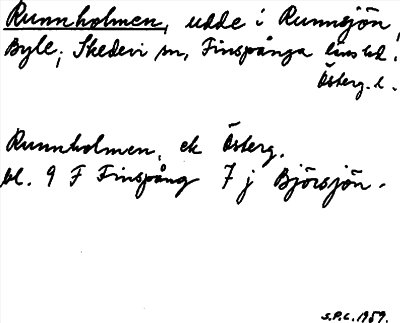 Runnholmen, udde i Runnsjön,
Byle, Skedevi sn, Finspånga länslad.
Österg. l.
Runnholmen, ek Österg.
bl. 9 F Finspång 7 j Björsjön.
S.P.C. 1959.